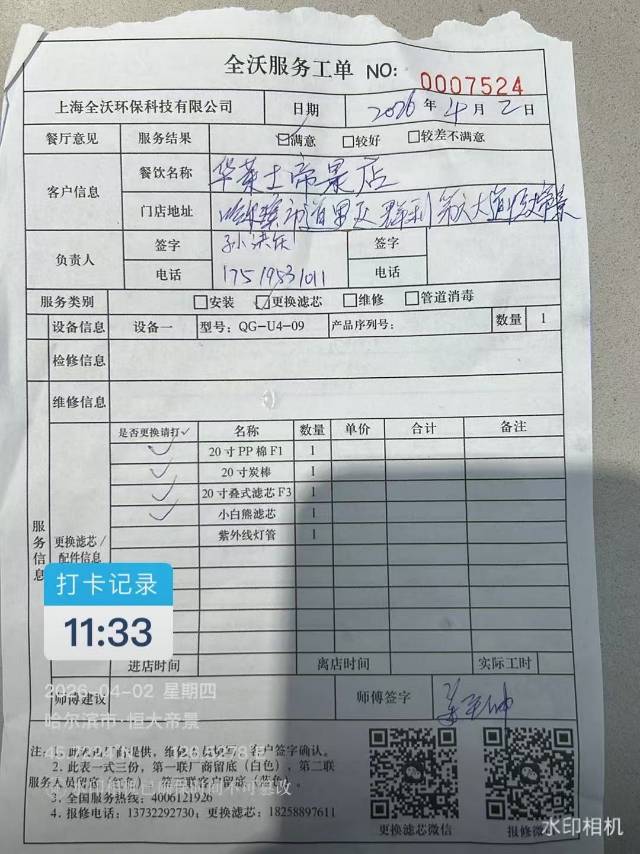 全沃服务工单 NO: 0007524
上海全沃环保科技有限公司 日期 2026 年 4 月 2 日
餐厅意见 服务结果 ☑满意 □较好 □较差不满意
客户信息 餐饮名称 华莱士帝景店
门店地址 哈尔滨市道里区群利第六大道恒大帝景
负责人 签字 孙洪 签字
电话 17519531011 电话
服务类别 □安装 ☑更换滤芯 □维修 □管道消毒
设备信息 设备一 型号: QG-U4-09 产品序列号: 数量 1
检修信息
维修信息
服务信息 更换滤芯/配件信息
是否更换请打✓ 名称 数量 单价 合计 备注
✓ 20寸PP棉F1 1
✓ 20寸炭棒 1
✓ 20寸叠式滤芯F3 1
✓ 小白熊滤芯 1
紫外线灯管 1
打卡记录
11:33
进店时间 离店时间 实际工时
2026-04-02 星期四
师傅建议 师傅签字 姜
哈尔滨市·恒大帝景
注: 1.
客户签字确认。
2. 此表一式三份, 第一联厂商留底(白色), 第二联
服务人员留底(红色), 第三联客户留底(蓝色)。
3. 全国服务热线: 4006121926
4. 报修电话: 13732292730, 更换滤芯: 18258897611
更换滤芯微信 报修微信
水印相机